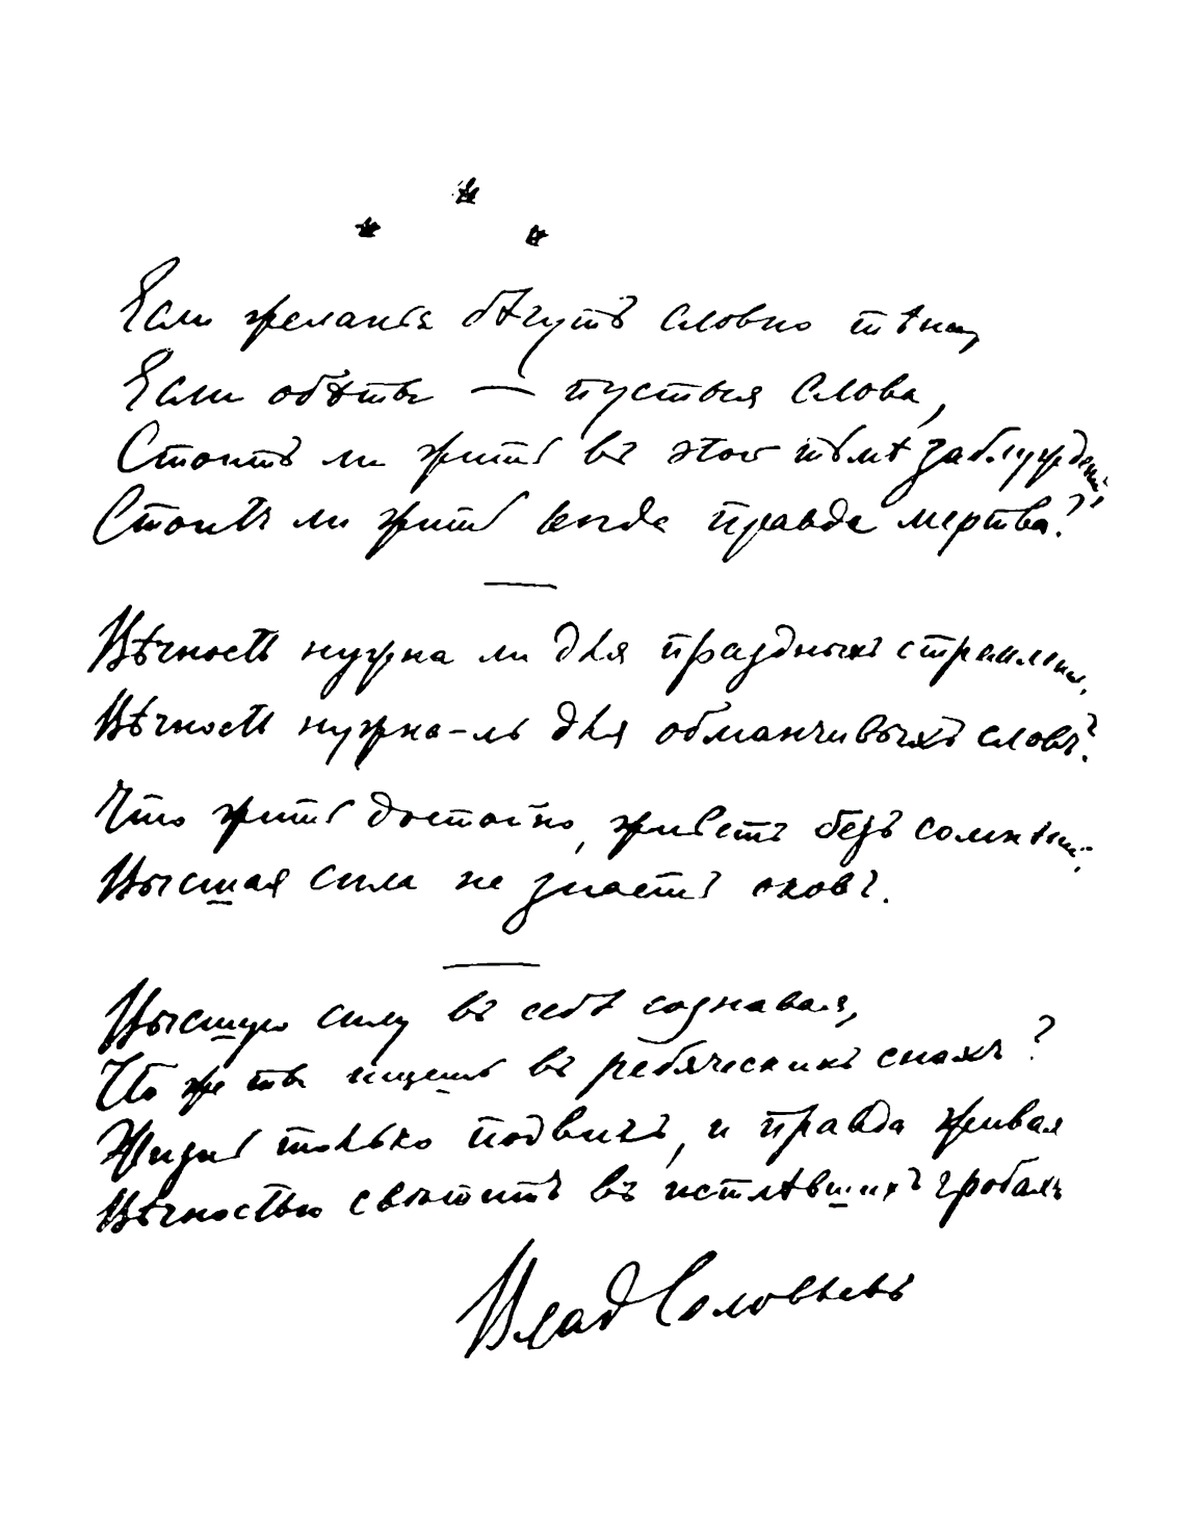 * * *
Если желанія бѣгутъ словно тѣни,
Если обѣты — пустыя слова,
Стоитъ ли жить въ этой тьмѣ заблужденій,
Стоитъ ли жить когда правда мертва?
Вѣчность нужна ли для праздныхъ стремленій,
Вѣчность нужна-ль для обманчивыхъ словъ?
Что жить достойно, живетъ безъ сомнѣній,
Высшая сила не знаетъ оковъ.
Высшую силу въ себѣ сознавая,
Что же ты ищешь въ ребяческихъ снахъ?
Жизнь только подвигъ, и правда живая
Вѣчностью свѣтитъ въ истлѣвшихъ гробахъ
Влад Соловьевъ